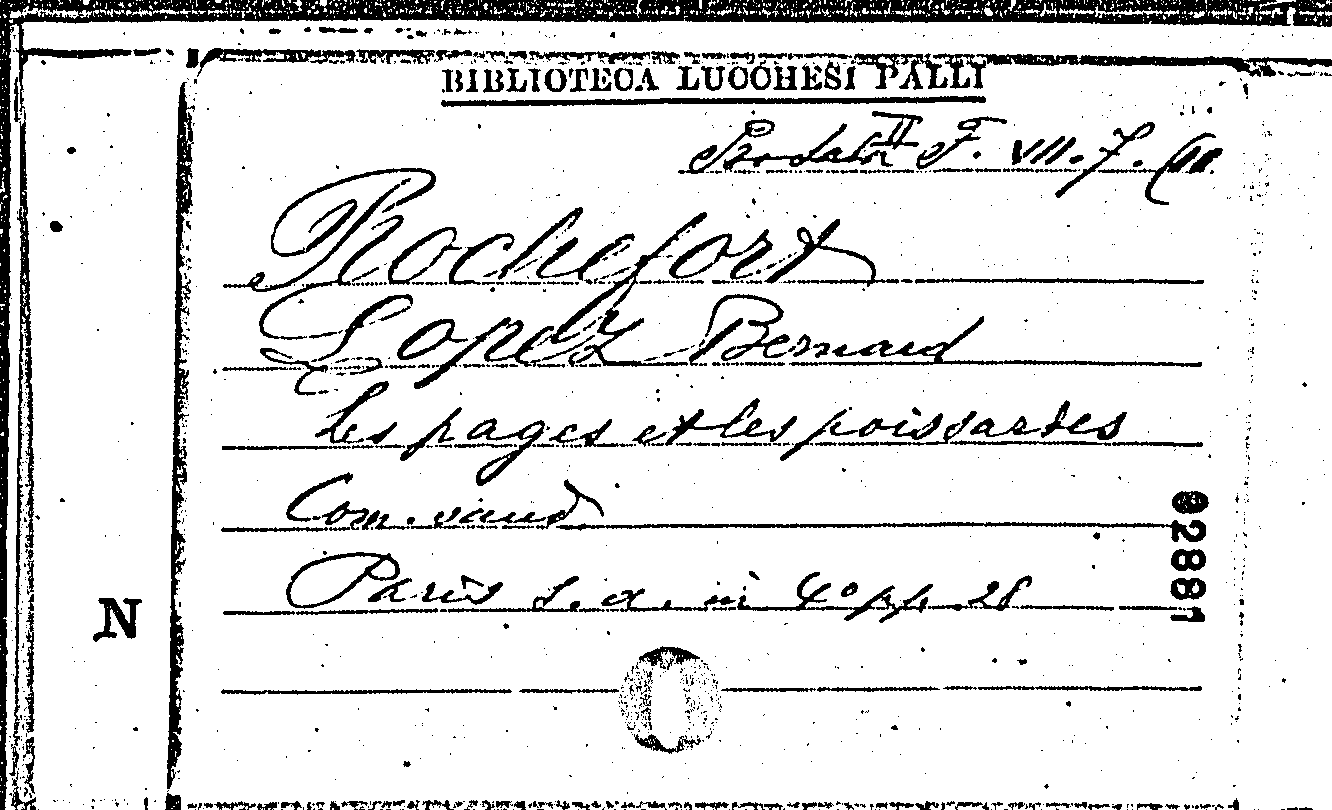 BIBLIOTECA LUCCHESI PALLI
F. VII. 7.
Rochefort
Lopez Bernard
Les pages et les poissardes
Com. vaud.
Paris s. a. in 4º pp. 28
02881
N